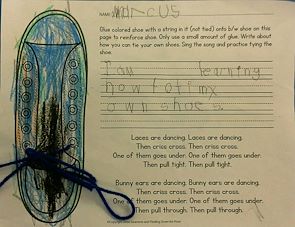 NAME MARCUS
Glue colored shoe with a string in it (not tied) onto b/w shoe on this
page to reinforce shoe. Only use a small amount of glue. Write about
how you can tie your own shoes. Sing the song and practice tying the
shoe.
I am learning
how to ti my
own shoes.
Laces are dancing. Laces are dancing.
Then criss cross. Then criss cross.
One of them goes under. One of them goes under.
Then pull tight. Then pull tight.
Bunny ears are dancing. Bunny ears are dancing.
Then criss cross. Then criss cross.
One of them goes under. One of them goes under.
Then pull through. Then pull through.